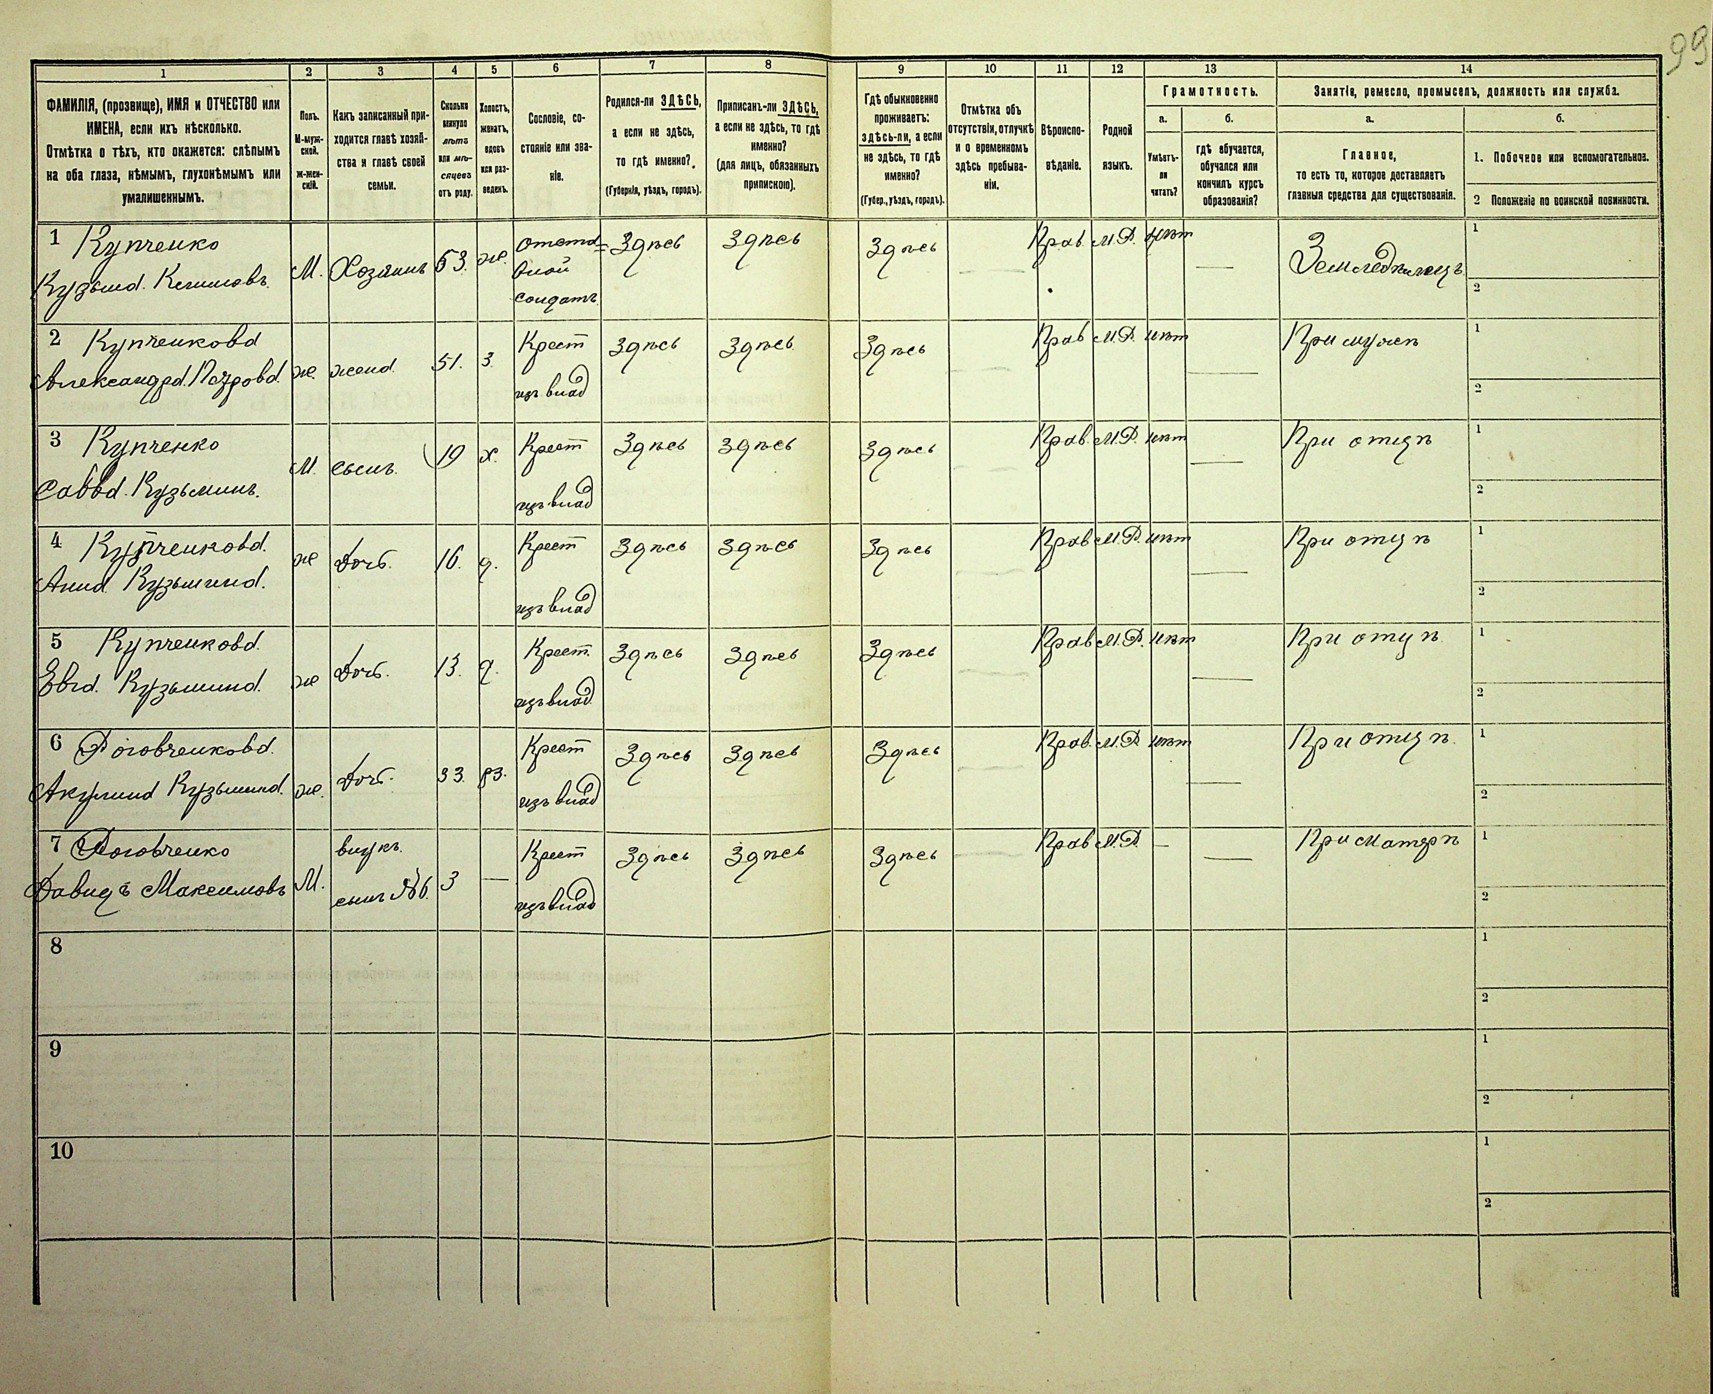 99
1 2 3 4 5 6 7 8 9 10 11 12 13 14
ФАМИЛІЯ, (прозвище), ИМЯ и ОТЧЕСТВО или
ИМЕНА, если ихъ нѣсколько.
Отмѣтка о тѣхъ, кто окажется: слѣпымъ
на оба глаза, нѣмымъ, глухонѣмымъ или
умалишеннымъ.
Полъ.
М-муж-
ской.
ж-жен-
скій.
Какъ записанный при-
ходится главѣ хозяй-
ства и главѣ своей
семьи.
Сколько
минуло
лѣтъ
или мѣ-
сяцевъ
отъ роду.
Холостъ,
женатъ,
вдовъ
или раз-
веденъ.
Сословіе, со-
стояніе или зва-
ніе.
Родился-ли ЗДѢСЬ,
а если не здѣсь,
то гдѣ именно?
(Губернія, уѣздъ, городъ).
Приписанъ-ли ЗДѢСЬ,
а если не здѣсь, то гдѣ
именно?
(для лицъ, обязанныхъ
припискою).
Гдѣ обыкновенно
проживаетъ:
здѣсь-ли, а если
не здѣсь, то гдѣ
именно?
(Губер., уѣздъ, городъ).
Отмѣтка объ
отсутствіи, отлучкѣ
и о временномъ
здѣсь пребыва-
ніи.
Вѣроиспо-
вѣданіе.
Родной
языкъ.
Грамотность.
а.
Умѣетъ-
ли
читать?
б.
гдѣ обучается,
обучался или
кончилъ курсъ
образованія?
Занятіе, ремесло, промыселъ, должность или служба.
а.
Главное,
то есть то, которое доставляетъ
главныя средства для существованія.
б.
1. Побочное или вспомогательное.
2 Положеніе по воинской повинности.
1 Купченко
Кузьма Климовъ. М. Хозяинъ 53. ж. отстав=
ной
солдатъ Здѣсь Здѣсь Здѣсь — Прав. М.Р. нѣт — Земледѣлецъ 1
2
2 Купченкова
Александра Петрова ж. жена. 51. З. Крест
изъ влад Здѣсь Здѣсь Здѣсь — Прав М.Р. нѣт — При мужѣ 1
2
3 Купченко
Савва Кузьминъ. М. сынъ. 19 х. Крест
изъ влад Здѣсь Здѣсь Здѣсь — Прав. М.Р. нѣт — При отцѣ 1
2
4 Купченкова.
Анна Кузьмина. ж Дочь. 16. д. Крест
изъ влад Здѣсь Здѣсь Здѣсь — Прав М.Р. нѣт — При отцѣ 1
2
5 Купченкова.
Евга. Кузьмина. ж Дочь. 13. д. Крест.
изъ влад Здѣсь Здѣсь Здѣсь — Прав М.Р. нѣт — При отцѣ 1
2
6 Роговченкова.
Акулина Кузьмина. ж. Дочь. 33. вз. Крест
изъ влад Здѣсь Здѣсь Здѣсь — Прав. М.Р. нѣт — При отцѣ 1
2
7 Роговченко
Давидъ Максимовъ М. внукъ.
сынъ №6. 3 — Крест
изъ влад Здѣсь Здѣсь Здѣсь — Прав М.Р. — — При матерѣ 1
2
8 1
2
9 1
2
10 1
2